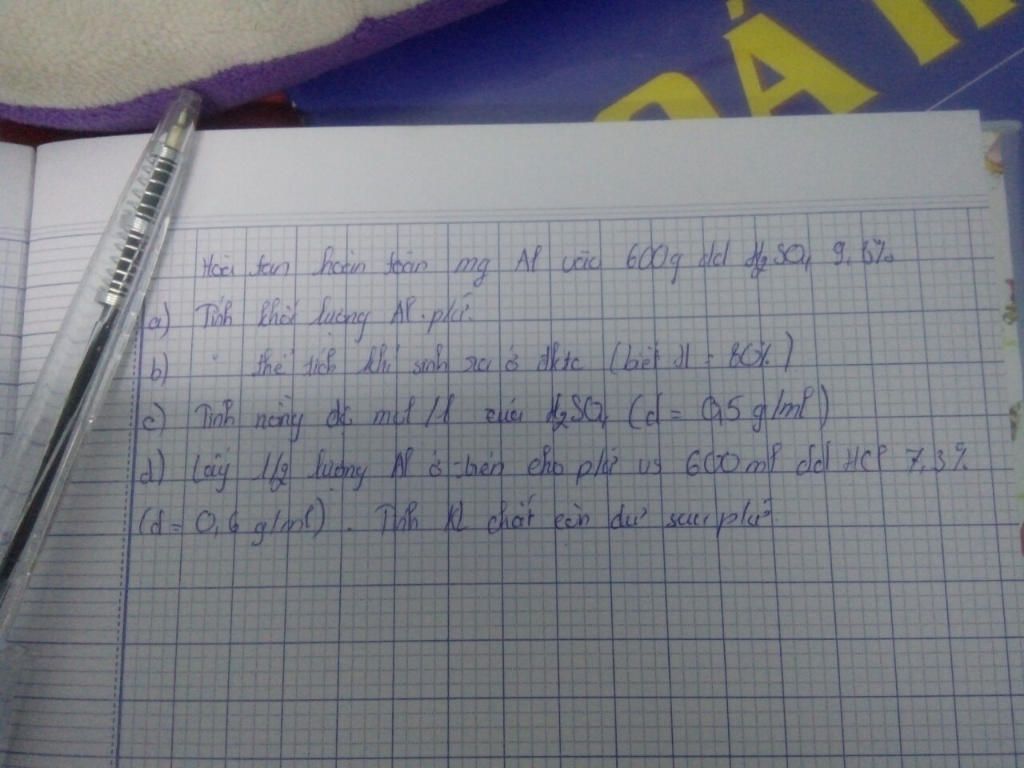 ÁN
Hoà tan hoàn toàn mg Al vào 600g dd H₂SO₄ 9,8%
a) Tính khối lượng Al pứ.
b) " thể tích khí sinh ra ở đktc (biết H = 80%)
c) Tính nồng độ mol/l của H₂SO₄ (d = 0,5 g/ml)
d) Lấy 1/2 lượng Al ở trên cho pứ vs 600 ml dd HCl 7,3%
(d = 0,6 g/ml). Tính KL chất còn dư sau pứ.